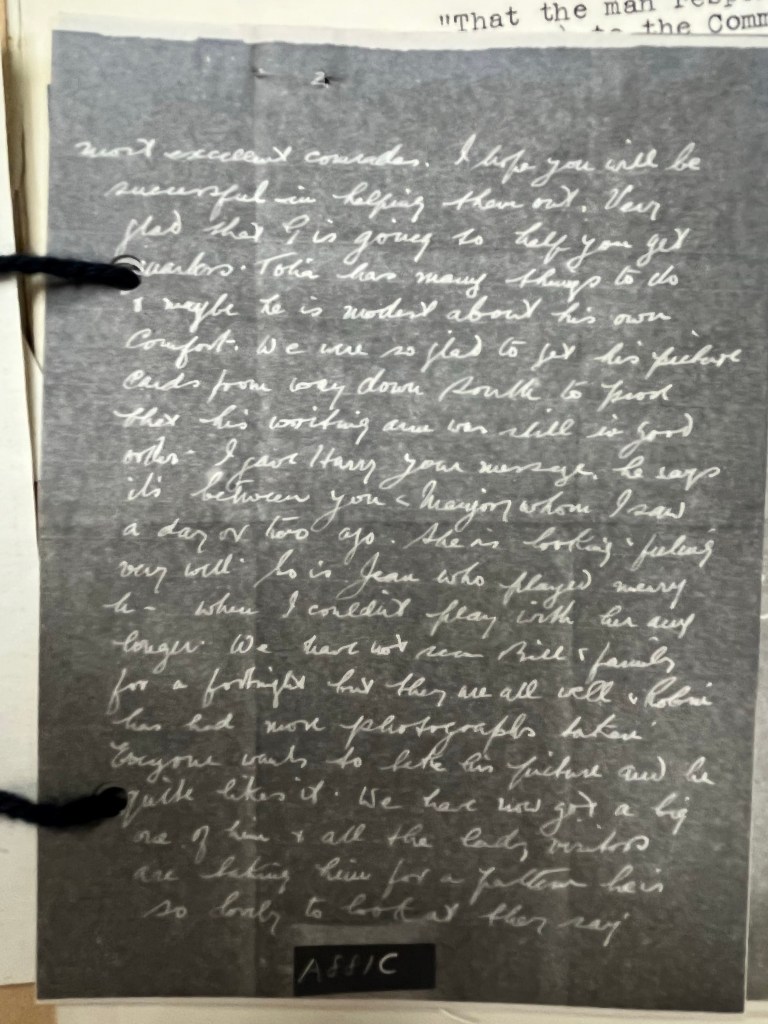 "That the man resp
to the Comm
2
most excellent comrades. I hope you will be
successful in helping them out. Very
glad that G is going to help you get
quarters. Tolia has many things to do
& maybe he is modest about his own
comfort. We were so glad to get his picture
cards from way down south to proof
that his writing arm was still in good
order. I gave Harry your message, he says
it's between you & Marjory whom I saw
a day or two ago. She is looking & feeling
very well. So is Jean who played merry
h- when I couldn't play with her any
longer. We have not seen Bill & family
for a fortnight but they are all well & Robin
has had more photographs taken.
Everyone wants to take his picture and he
quite likes it. We have now got a big
one of him & all the lady visitors
are taking him for a pattern he is
so lovely to look at they say
A881C